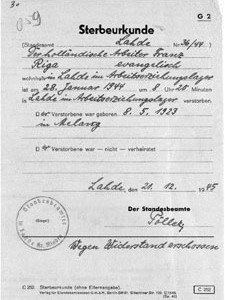 30
959
G 2
Sterbeurkunde
(Standesamt Lahde Nr. 36/44.)
Der holländische Arbeiter Franz
Riga evangelisch
wohnhaft in Lahde im Arbeitserziehungslager
ist am 28. Januar 1944 um 8 Uhr 20 Minuten
in Lahde im Arbeitserziehungslager verstorben.
D er Verstorbene war geboren am 8. 5. 1923
in Melang
D er Verstorbene war — nicht — verheiratet
Lahde, den 21. 12. 1945
Der Standesbeamte
(Siegel)
Wegen Widerstand erschossen
C 252. Sterbeurkunde (ohne Elternangabe).
C 252